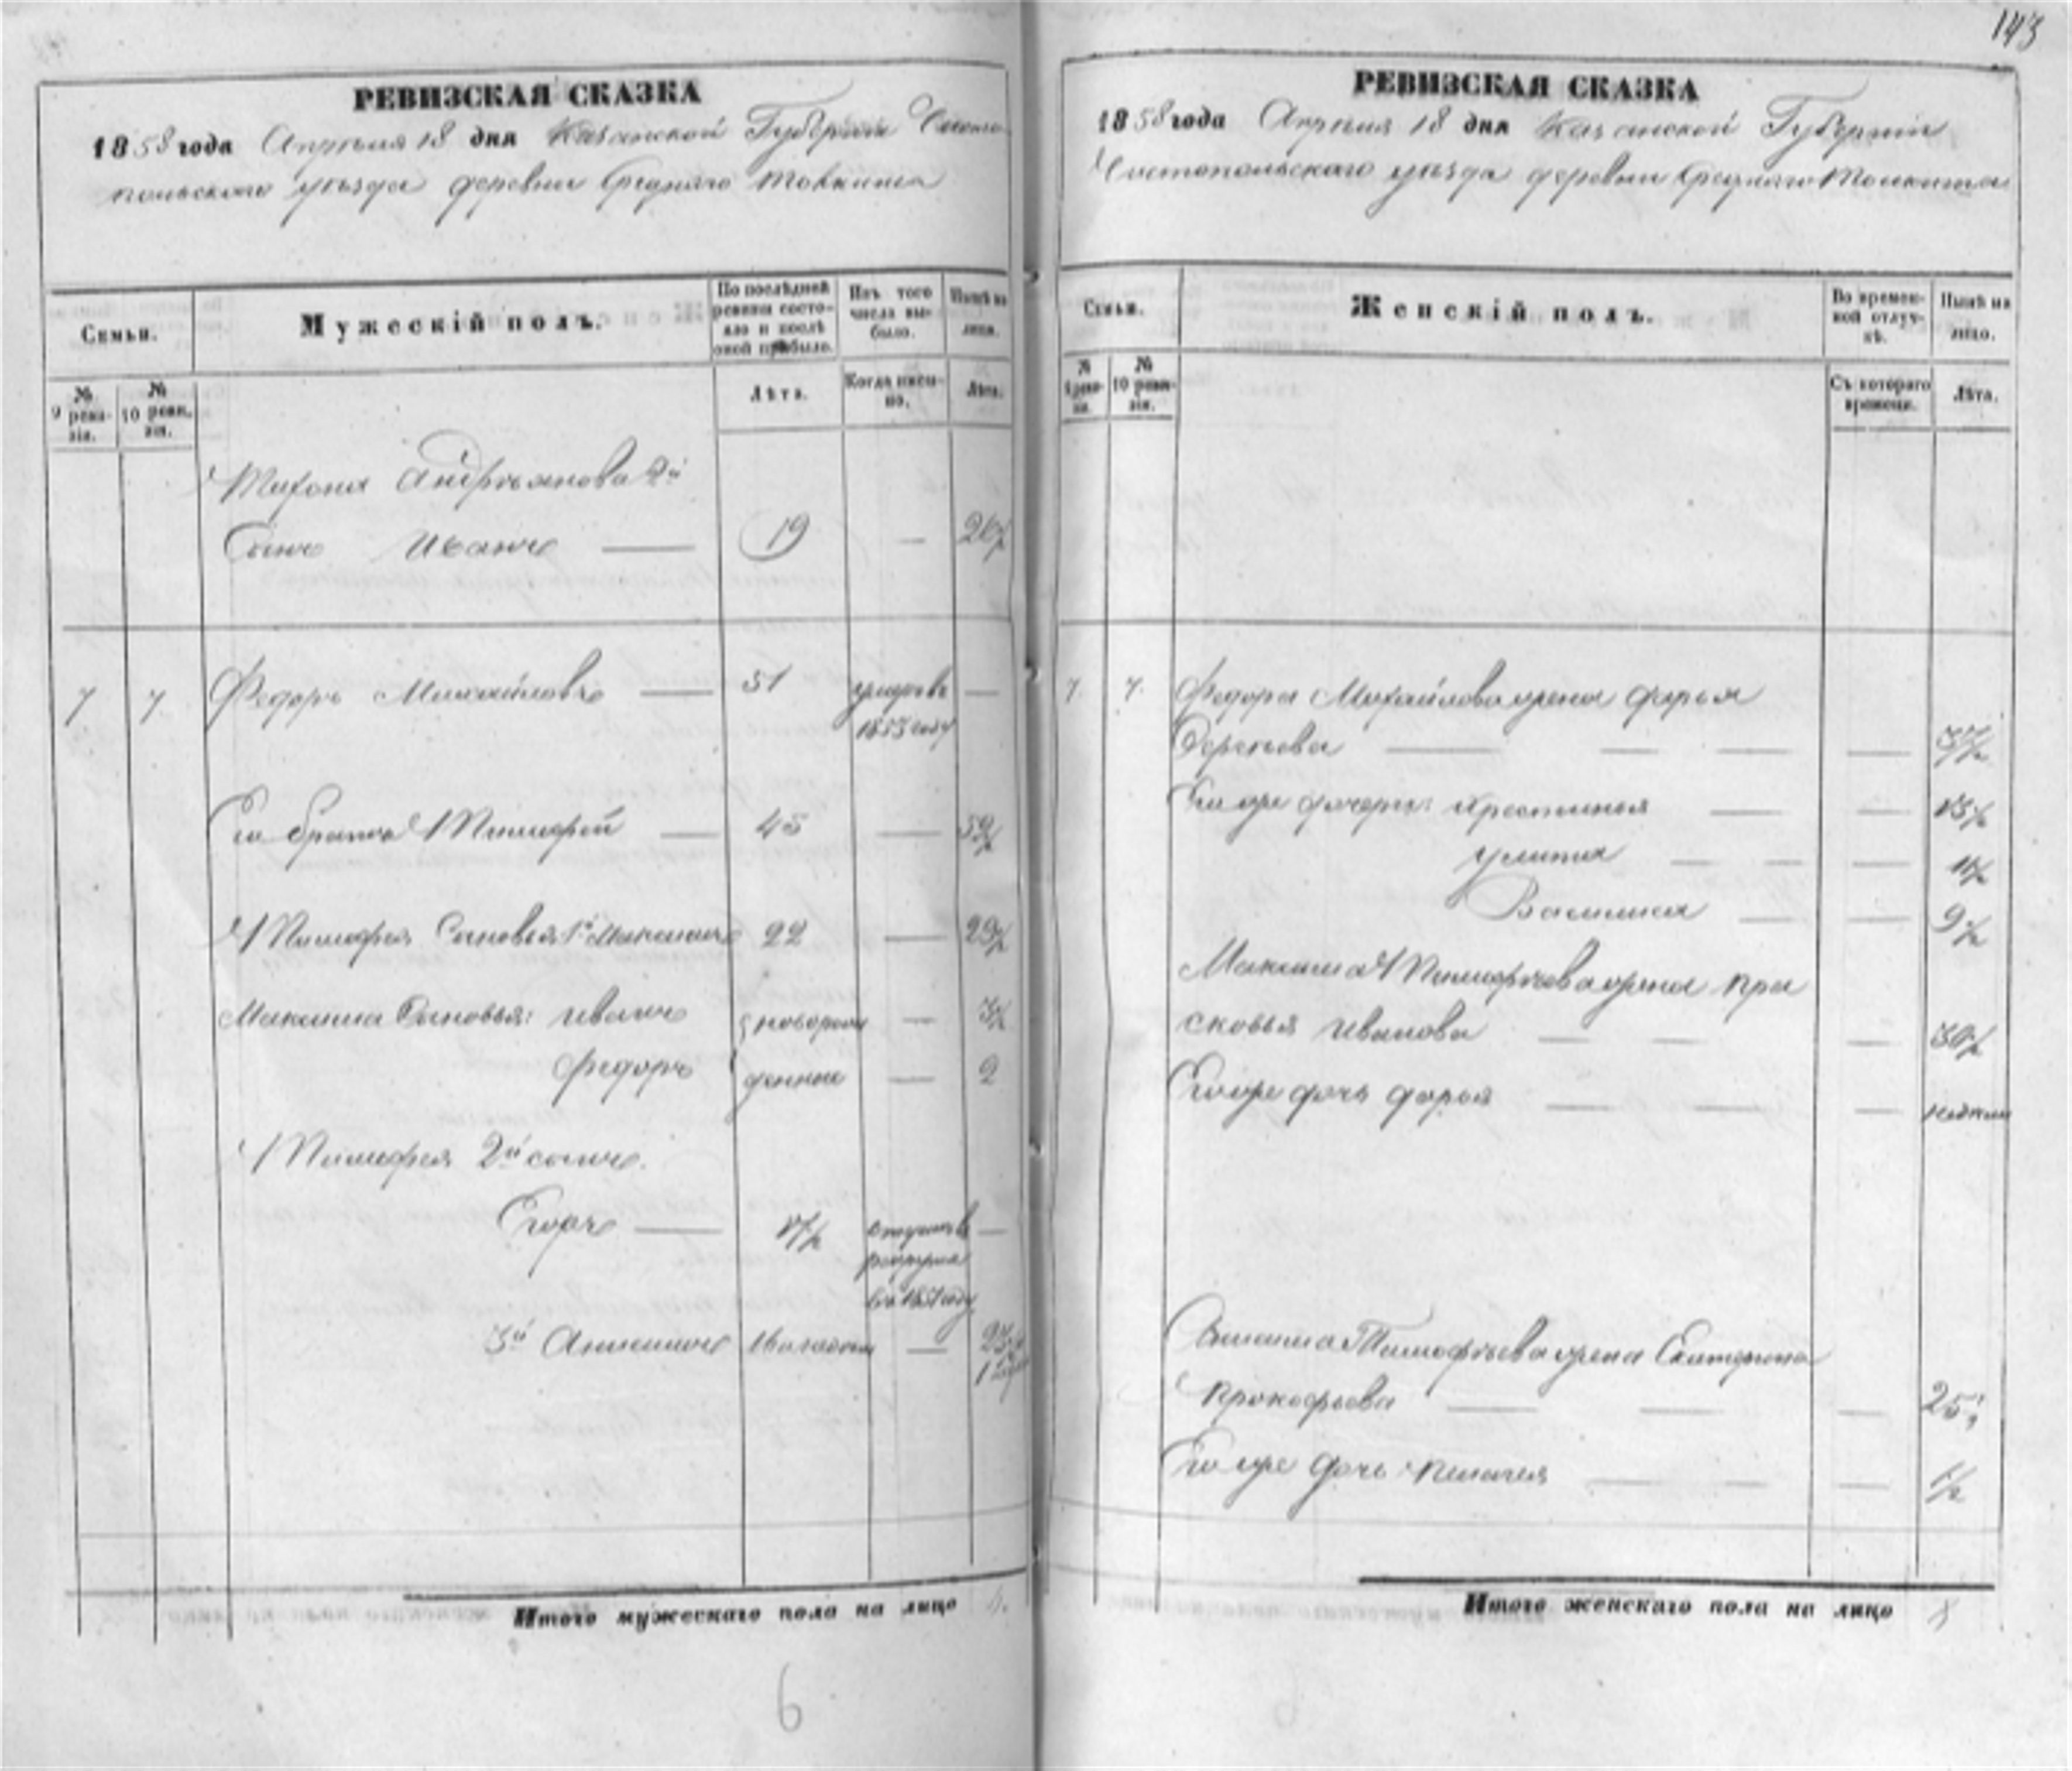 143
РЕВИЗСКАЯ СКАЗКА
1858 года Апреля 18 дня Казанской Губернии Чисто-
польскаго уезда деревни Средняго Толкиша
Семьи.
Мужескій полъ.
По послѣдней ревизіи состояло и послѣ оной прибыло.
Изъ того числа выбыло.
Нынѣ на лицо.
№ 9 ревизіи.
№ 10 ревизіи.
Лѣта.
Когда именно.
Лѣта.
Тихона Андреянова 2й
Сынъ Иванъ — 19 —
7 7 Федоръ Михайловъ — 51 умеръ въ —
1853 году
Его братъ Тимофей — 45 — 52½
Тимофея Сыновья 1й Максимъ 22 — 29½
Максима Сыновья: Иванъ новорож — 3½
Федоръ денные — 2
Тимофея 2й сынъ.
Егоръ — 17½ —
рекруты
въ 1851 году
3й
РЕВИЗСКАЯ СКАЗКА
1858 года Апреля 18 дня Казанской Губернии
Чистопольскаго уезда деревни Средняго Толкиша
Семьи.
Женскій полъ.
Во временной отлучкѣ.
Нынѣ на лицо.
№ 9 ревизіи.
№ 10 ревизіи.
Съ котораго времени.
Лѣта.
7. 7. Федора Михайлова жена Дарья
— — — —
Его же дочери: Кристинья — — 13½
Улита — — — 11½
Василиса — — 9½
Максима Тимофеева жена Пра
сковья Иванова — — — 30½
Его же дочь Дарья — — —
Тимофеева жена Екатерина
Прокофьева — — — 25
Его же дочь Пелагея — — — ½
Итого мужескаго пола на лицо
Итого женскаго пола на лицо
6